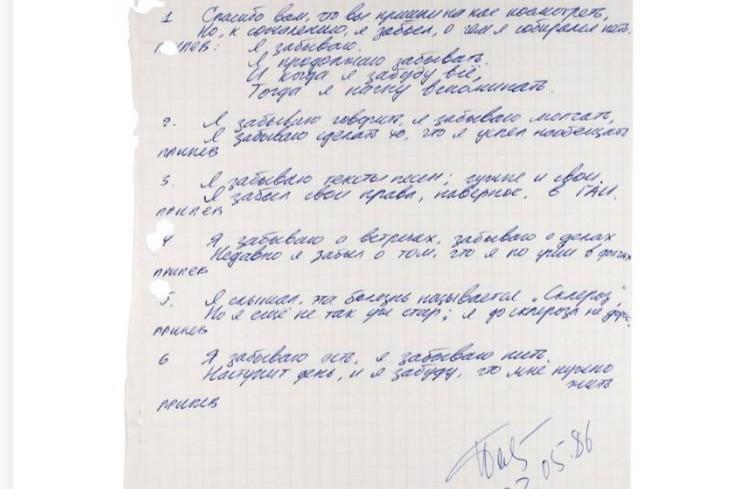 1 Спасибо вам, что вы пришли на нас посмотреть,
Но, к сожалению, я забыл, о чём я собирался петь.
припев: Я забываю.
Я продолжаю забывать.
И когда я забуду всё,
Тогда я начну вспоминать.
2. Я забываю говорить, я забываю молчать,
Я забываю сделать то, что я успел наобещать
припев
3. Я забываю тексты песен; чужие и свои.
Я забыл свои права, наверное, в ГАИ.
припев
4 Я забываю о встречах, забываю о делах
Недавно я забыл о том, что я по уши в долгах
припев
5. Я слышал, эта болезнь называется "Склероз",
Но я ещё не так уж стар; я до склероза не дорос.
припев
6 Я забываю есть, я забываю пить.
Наступит день, и я забуду, что мне нужно
жить
припев
05.86